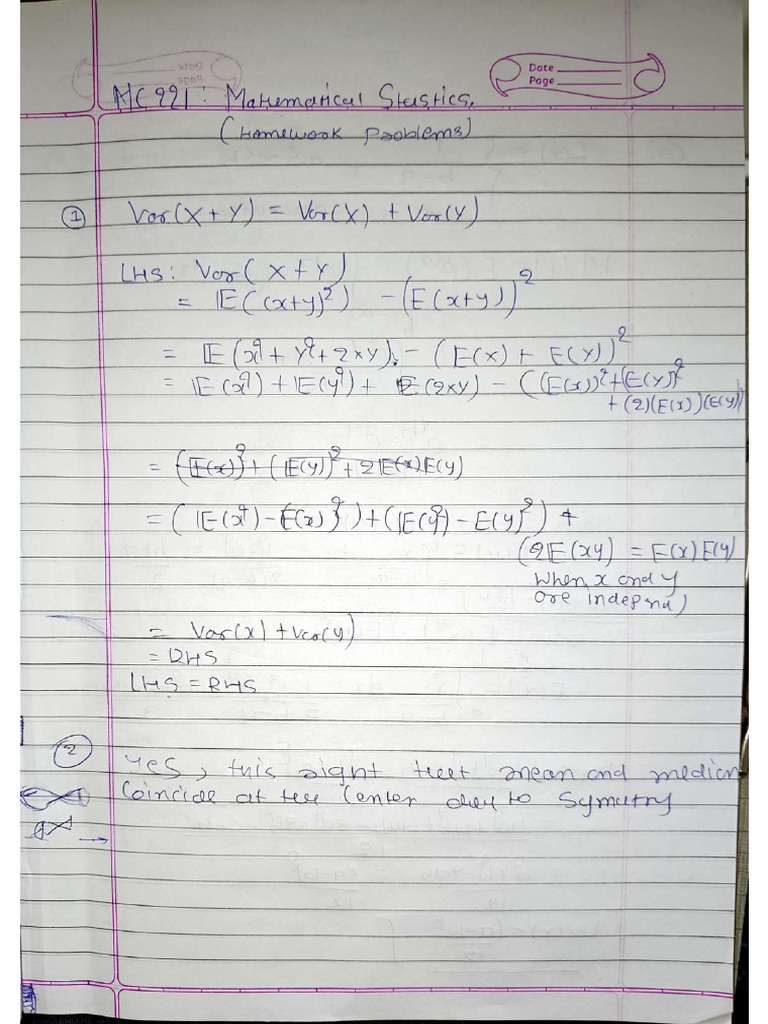 Date
Page
MC221: Mathematical Stastics.
(Homework Problems)
① Var(X+Y) = Var(X) + Var(Y)
LHS: Var(X+Y)
= E((x+y)²) - (E(x+y))²
= E(x²+y²+2xy) - (E(x) + E(y))²
= E(x²) + E(y²) + E(2xy) - ((E(x))² + (E(y))²
+ (2)(E(x))(E(y))
= (E(x))² + (E(y))² + 2E(x)E(y)
= (E(x²) - E(x)²) + (E(y²) - E(y)²) +
(2E(xy) = E(x)E(y)
When x and y
are indepnd)
= Var(x) + Var(y)
= RHS
LHS = RHS
② Yes, this right that mean and median
Coincide at the Center due to Symetry